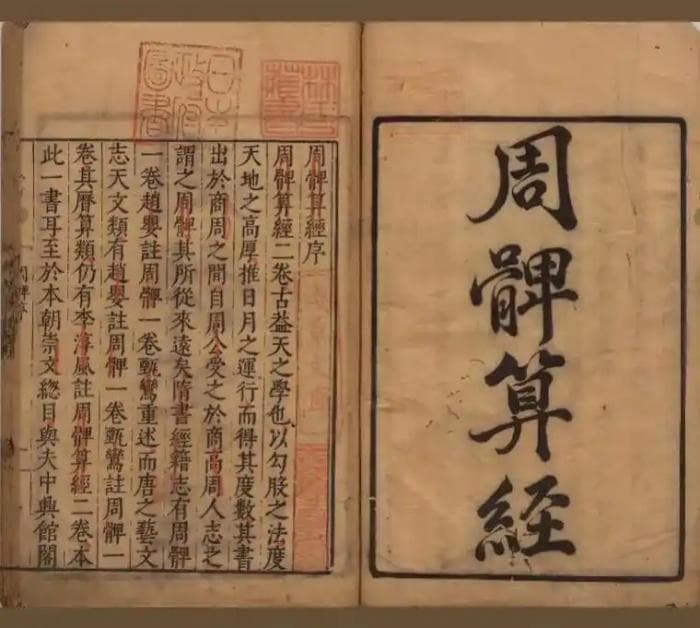 周髀算経
林氏藏書
日本政府圖書
周髀算經序
周髀算經二卷古葢天之學也以勾股之法度
天地之高厚推日月之運行而得其度數其書
出於商周之間自周公受之於商高周人志之
謂之周髀其所從來遠矣隋書經籍志有周髀
一卷趙嬰註周髀一卷甄鸞重述而唐之藝文
志天文類有趙嬰註周髀一卷甄鸞註周髀一
卷其曆算類仍有李淳風註周髀算經二卷本
此一書耳至於本朝崇文總目與夫中興館閣